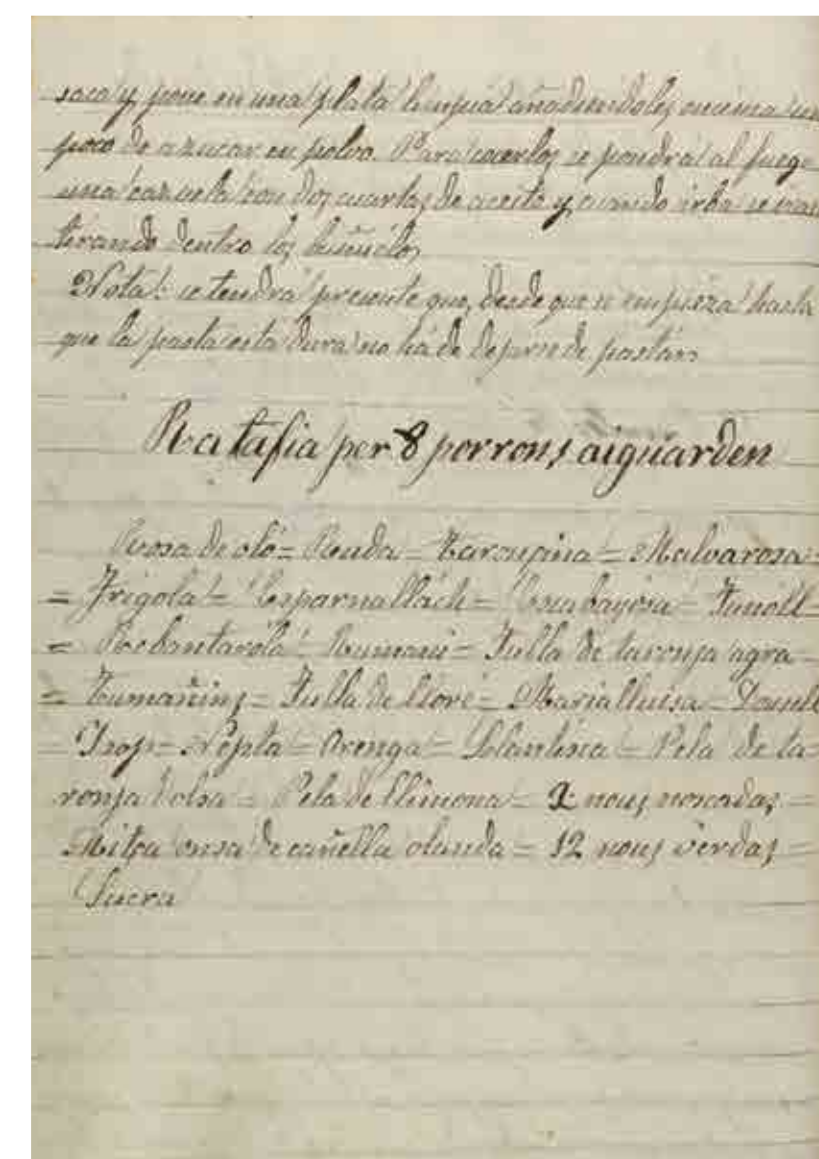 saca y pone en una plata limpia añadiendoles encima un
poco de azucar en polvo. Para cocerlos se pondrá al fuego
una cazuela con dos cuartas de aceite y cuando irba se van
tirando dentro los buñuelos
Nota: se tendrá presente que, desde que se empieza hasta
que la pasta está dura no há de dejarse de pastar
Ratafia per 8 porrons aiguarden
Rosa de oló = Ruda = Tarongina = Malvarosa =
= Frigola = Esparnallach = Escabayosa = Funoll =
= Rumani = Fulla de taronja agra =
= Tumañins = Fulla de lloré = Maria lluisa = Donsell
= Isop = Nepta = Orenga = = Pela de ta-
ronja dolsa = Pela de llimona = 2 nous noscadas =
Mitja onsa de cañella olanda = 12 nous verdas =
Sucra